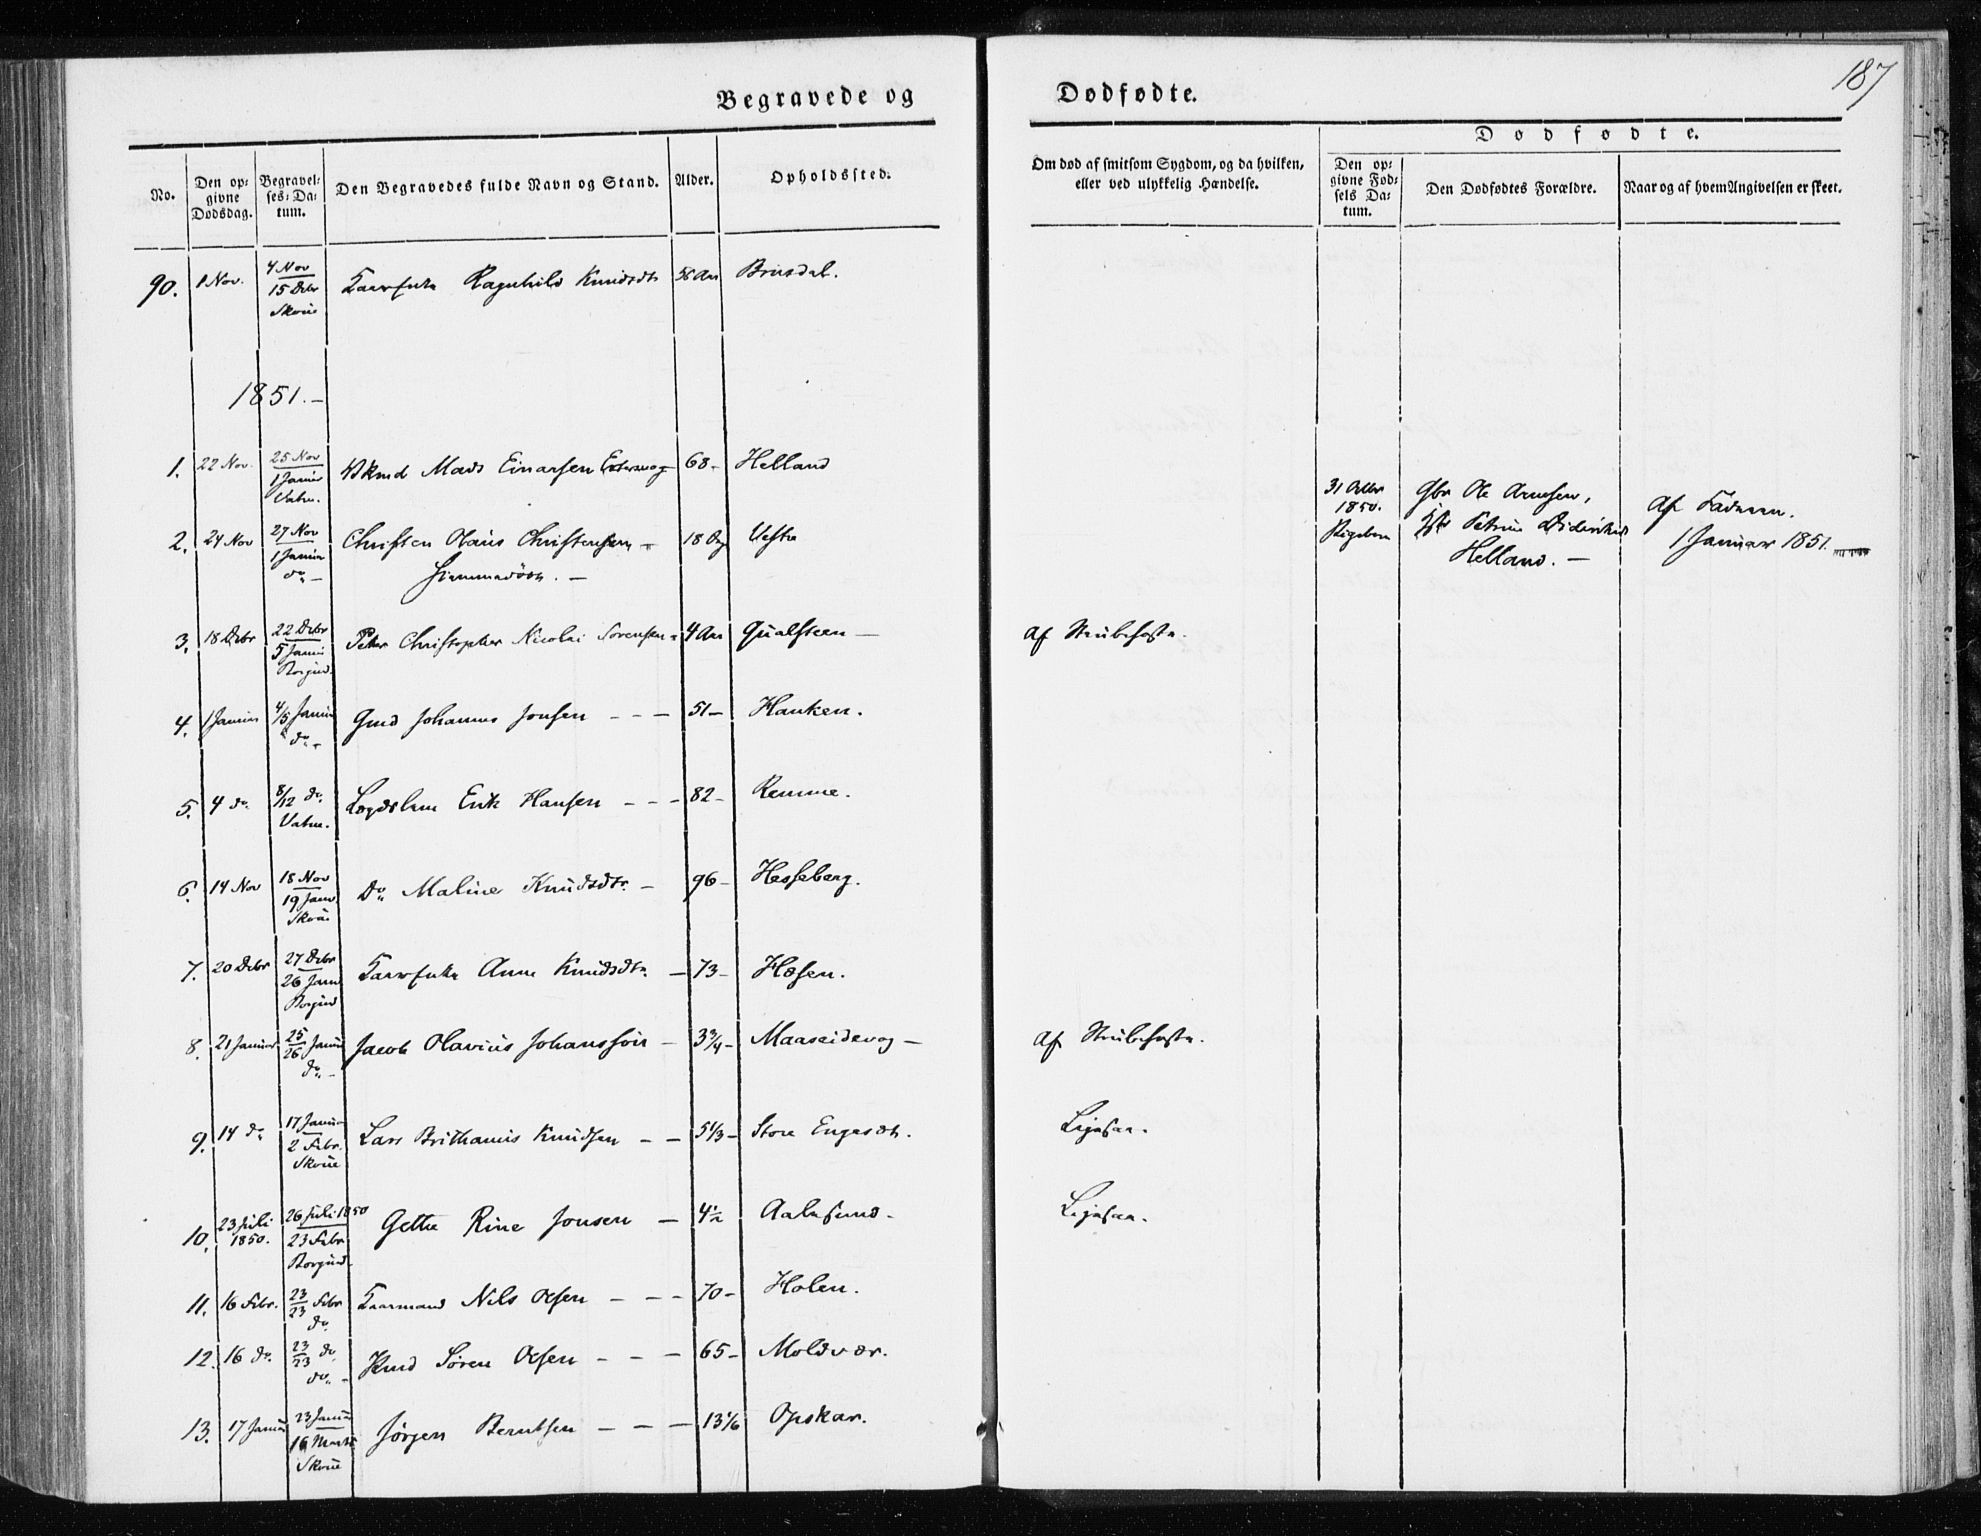 187
Begravede og Dødfødte.
No.
Den opgivne Dødsdag.
Begravelses-Datum.
Den Begravedes fulde Navn og Stand.
Alder.
Opholdssted.
Om død af smitsom Sygdom, og da hvilken, eller ved ulykkelig Hændelse.
Dødfødte.
Den opgivne Fødsels Datum.
Den Dødfødtes Forældre.
Naar og af hvem Angivelsen er skeet.
90. 1 Nov. 4 Nov 15 Dcbr Skoue Ragnhild Knudsdtr 56 Aar Brusdal.
1851.
1. 22 Nov. 25 Nov 1 Januar Vatne. Mads Einarsen 68 Helland
31 Octbr 1850. Ole Arnesen, Petrine Helland. Af Faderen. 1 Januar 1851.
2. 24 Nov 27 Nov 1 Januar do Christen Olaus Christensen 18 Dg Vestre
Hiemmedøbt.
3. 18 Dcbr 22 Dcbr 5 Januar Borgund Peter Christopher Nicolai Sørensen 4 Aar Qualsteen Af Strubehoste.
4. 1 Januar 4/5 Januar do Gmd Johannes Jonsen 51 Hanken.
5. 4 do 8/12 do Vatne. Lægdslem Erik Hansen 82 Remme.
6. 14 Nov 18 Nov 19 Janr Skoue Do Maline Knudsdtr. 96 Hesseberg.
7. 20 Dcbr 27 Dcbr 26 Janr Borgund Anne Knudsdtr. 73 Hosen.
8. 21 Januar 25/26 Januar do Jacob Olavius Johanssøn 3 3/4 Maaseidevog Af Strubehoste.
9. 14 do 17 Januar 2 Febr. Skoue Lars Brithanus Knudsen 5 1/3 Store Engesæt. Ligesaa.
10. 23 Juli 1850. 26 Juli 1850 23 Febr Borgund Gethe Rine Jonsen 4 1/2 Aalesund. Ligesaa.
11. 16 Febr. 23/23 Febr do Kaarmand Nils Olsen 70 Holen.
12. 16 do. 23/23 do do Søren Olsen 65 Moldvær.
13. 17 Januar 23 Januar 16 Marts Skoue Jørgen Berntsen 13 1/6 Opskar.